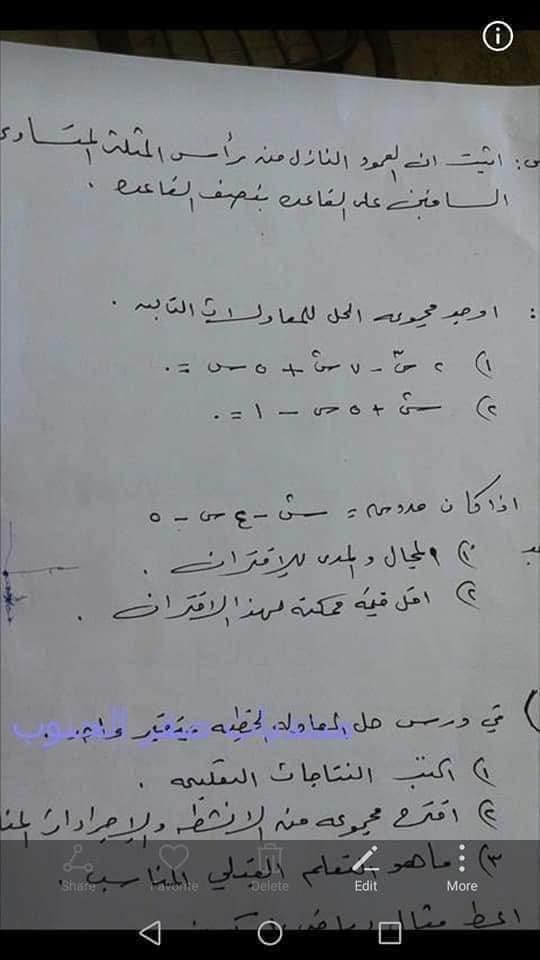 س: اثبت ان العمود النازل من رأس المثلث المتساوي
الساقين على القاعده ينصف القاعده .
: اوجد مجموعه الحل للمعادلات التاليه .
١) ٢س٣ - ٧س٢ + ٥س = ٠
٢) س٢ + ٥س - ١ = ٠
اذا كان = س٢ - ٤س - ٥
١) المجال والمدى للاقتران .
٢) اقل قيمة ممكنة لهذا الاقتران .
) في درس حل المعادله الخطيه بمتغير واحد .
١) اكتب النتاجات التعليميه .
٢) اقترح مجموعه من الانشطه والاجراءات
٣) ماهو التعلم القبلي المناسب
اعط مثال
Share
Favorite
Delete
Edit
More